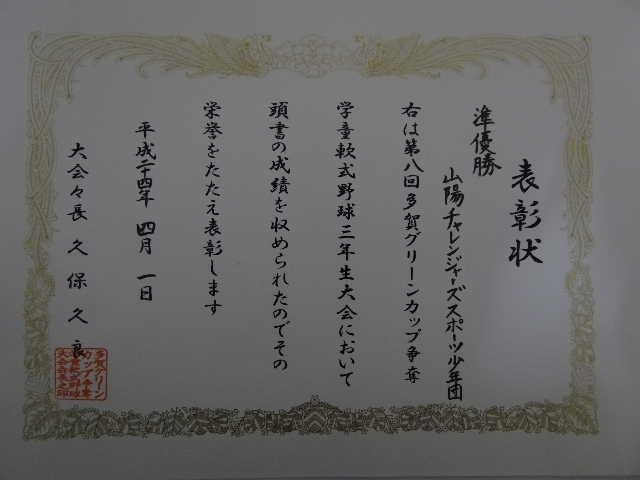 表彰状
準優勝
山陽チャレンジャーズスポーツ少年団
右は第八回多賀グリーンカップ争奪
学童軟式野球三年生大会において
頭書の成績を収められたのでその
栄誉をたたえ表彰します
平成二十四年 四月 一日
大会々長 久保 久良
多賀グリーン
カップ争奪